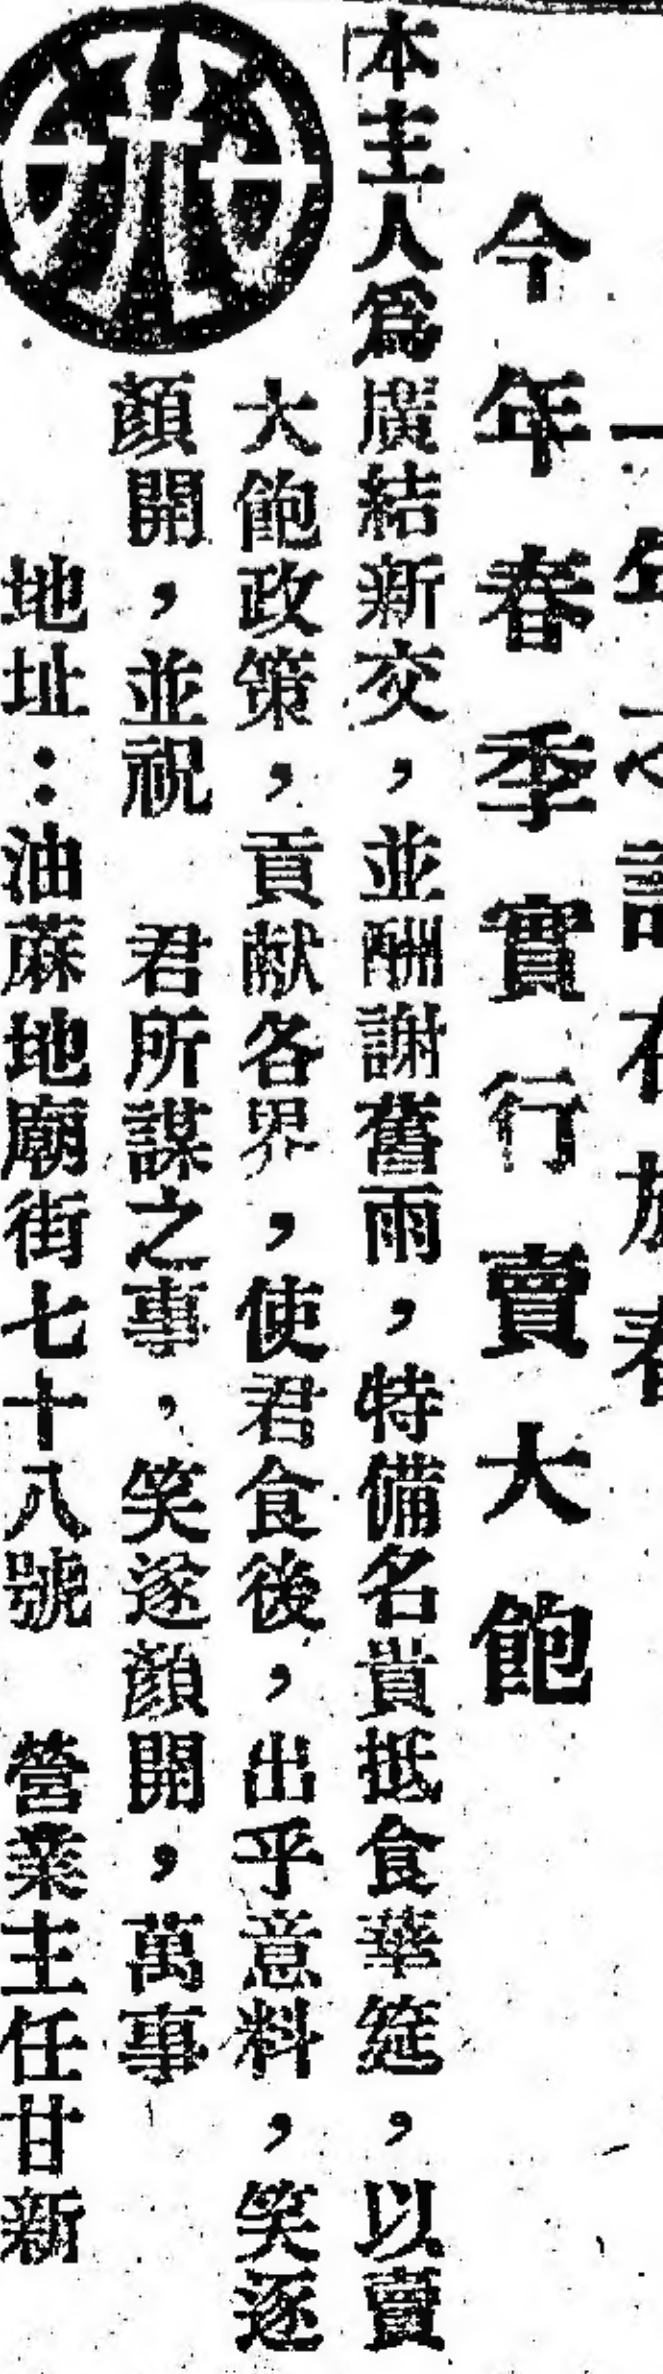 一年之計在於春
今年春季實行賣大飽
本主人爲廣結新交，並酬謝舊雨，特備名貴抵食華筵，以賣
大飽政策，貢献各界，使君食後，出乎意料，笑逐
顏開，並祝　君所謀之事，笑遂顏開，萬事
地址：油蔴地廟街七十八號　營業主任甘新